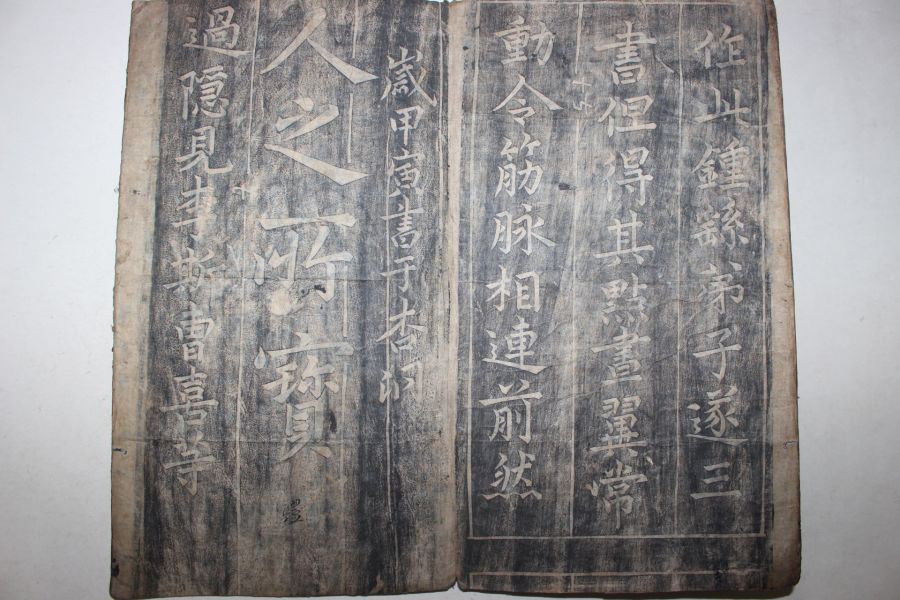 作此鍾繇弟子遂三
書但得其點畫翼常
動令筋脉相連前然
歲甲寅書于杏
人之所寶
過隠見李斯曹喜等